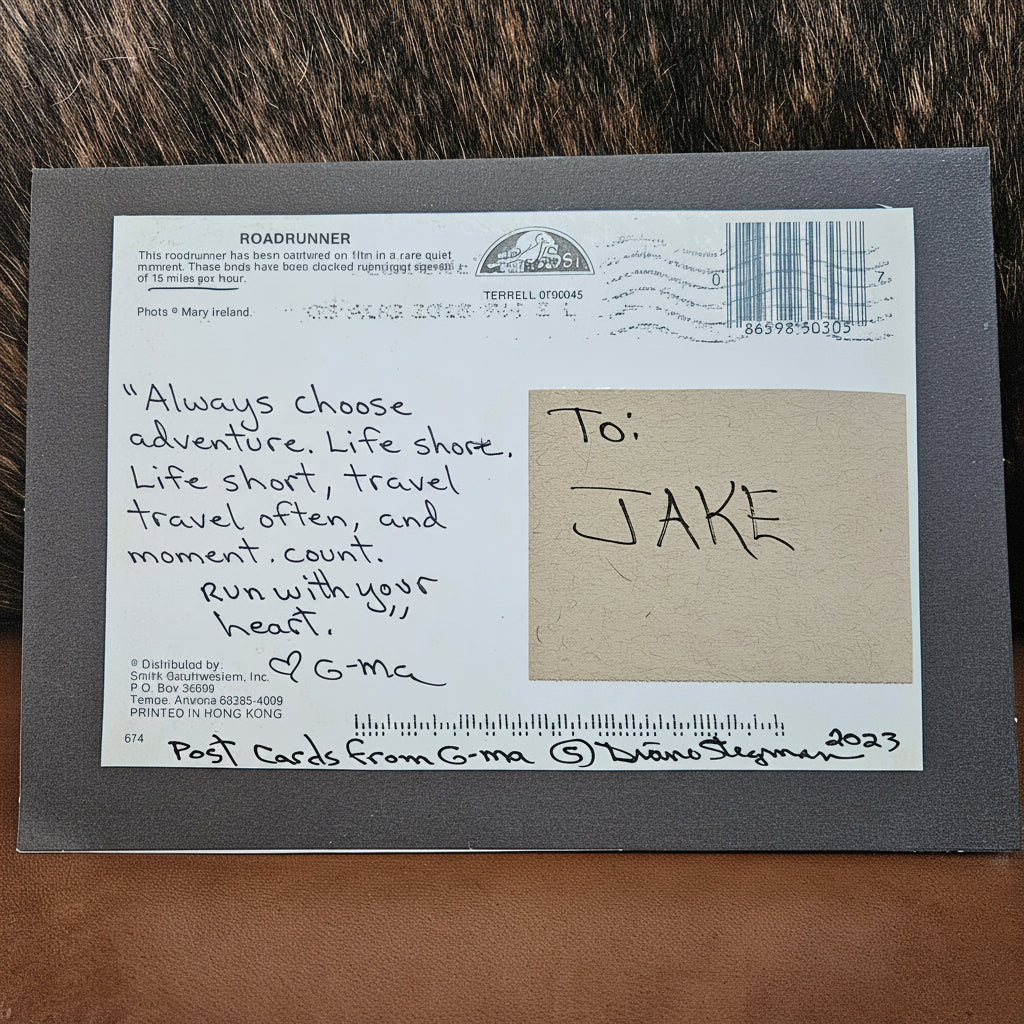 ROADRUNNER
This roodrunner has besn oartwred on fltn in a rare quiet
mmrent. Thase bnds have boeo clocked
of 15 miles gox hour.
Phots © Mary ireland.
TERRELL
0
7
86598-50305
"Always choose
adventure. Life short.
Life short, travel
travel often, and
moment. count.
Run with your
heart."
♡ G-ma
To:
JAKE
© Distribulod by:
Smitk Garuthwesiem, Inc.
P O. Bov 36699
Tempe. Anvona 68385-4009
PRINTED IN HONG KONG
674
Post Cards from G-ma Ⓢ Diano Stegman 2023